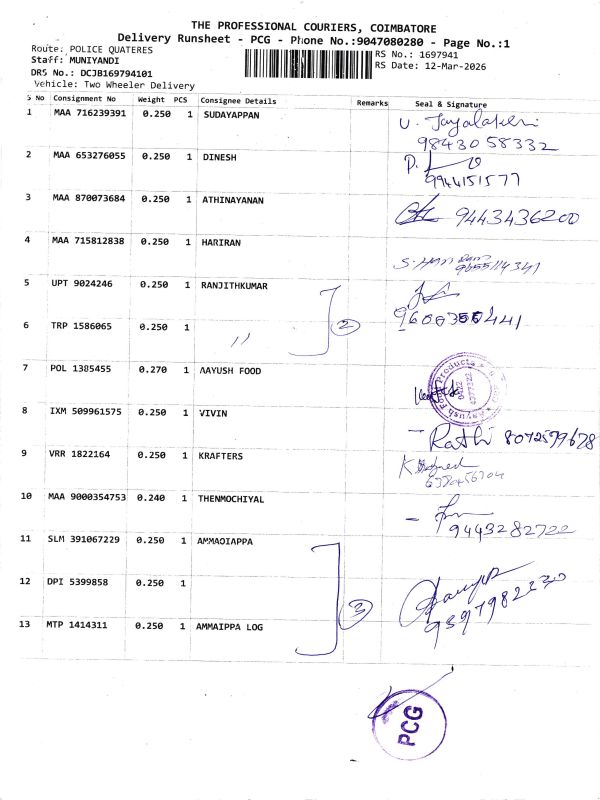 THE PROFESSIONAL COURIERS, COIMBATORE
Delivery Runsheet - PCG - Phone No.:9047080280 - Page No.:1
Route: POLICE QUATERES RS No.: 1697941
Staff: MUNIYANDI RS Date: 12-Mar-2026
DRS No.: DCJB169794101
Vehicle: Two Wheeler Delivery
S No Consignment No Weight PCS Consignee Details Remarks Seal & Signature
1 MAA 716239391 0.250 1 SUDAYAPPAN
98430 58332
2 MAA 653276055 0.250 1 DINESH P.
9944151577
3 MAA 870073684 0.250 1 ATHINAYANAN 9443436200
4 MAA 715812838 0.250 1 HARIRAN
5 UPT 9024246 0.250 1 RANJITHKUMAR
6 TRP 1586065 0.250 1 〃 2
7 POL 1385455 0.270 1 AAYUSH FOOD
Aayush Food Products
8 IXM 509961575 0.250 1 VIVIN - Rathi 8072599678
9 VRR 1822164 0.250 1 KRAFTERS
10 MAA 9000354753 0.240 1 THENMOCHIYAL
9443282722
11 SLM 391067229 0.250 1 AMMAOIAPPA
12 DPI 5399858 0.250 1 3
9397982330
13 MTP 1414311 0.250 1 AMMAIPPA LOG
PCG